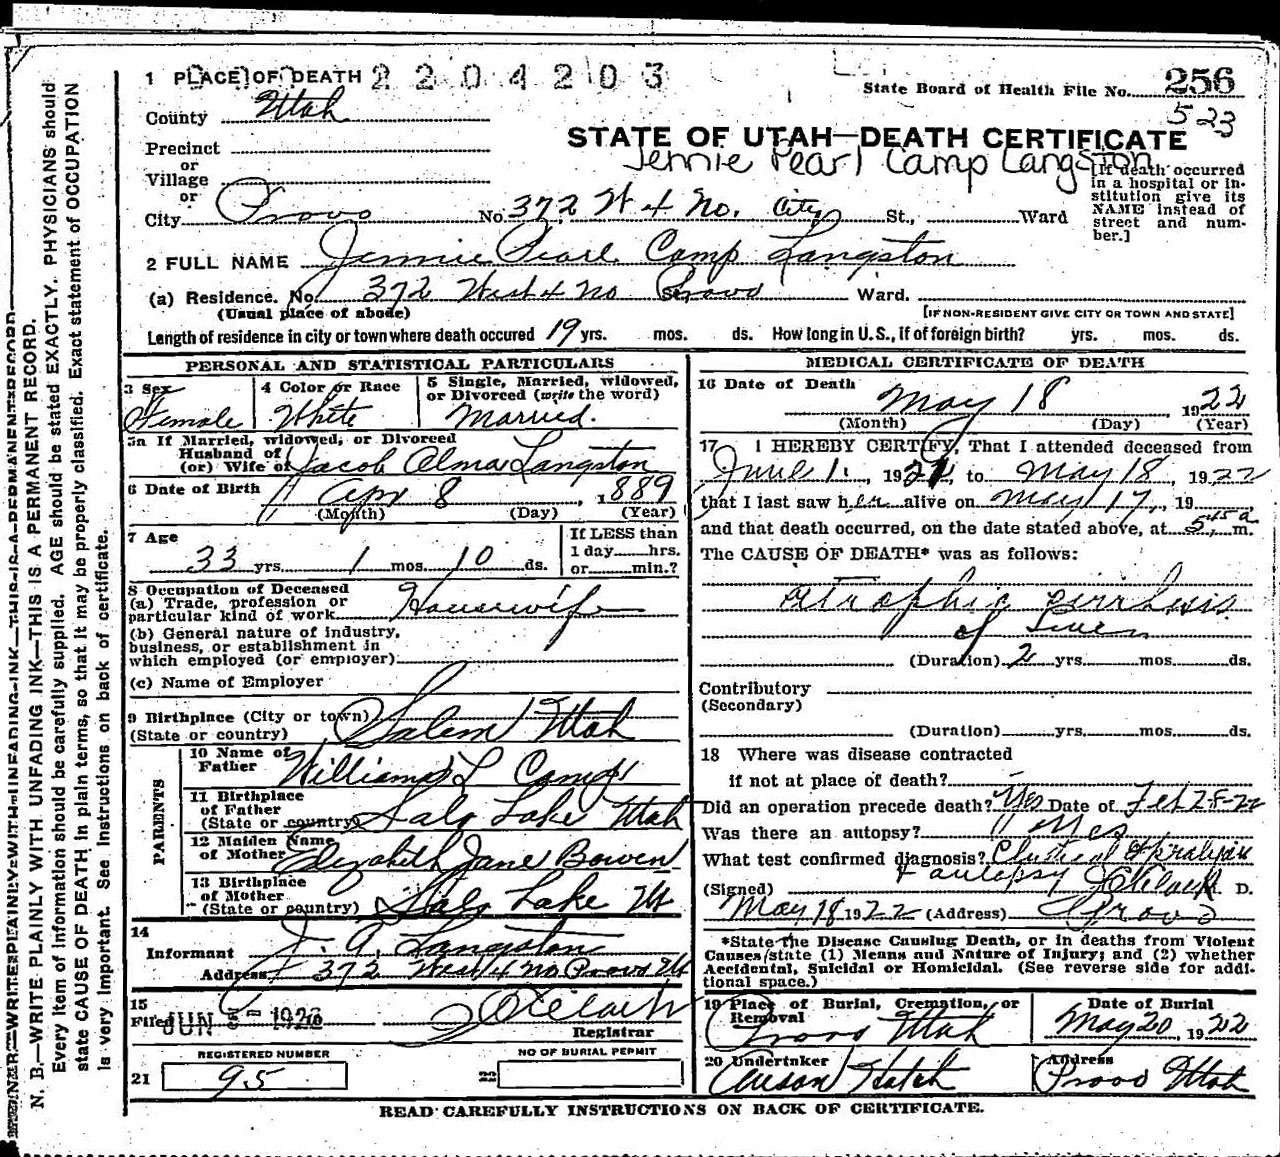 1 PLACE OF DEATH 2204203
State Board of Health File No. 256
523
County Utah
STATE OF UTAH—DEATH CERTIFICATE
Jennie Pearl Camp Langston
Precinct
or
Village
or
[If death occurred in a hospital or institution give its NAME instead of street and number.]
City Provo No. 372 W 4 No. City St., Ward
2 FULL NAME Jennie Pearl Camp Langston
(a) Residence. No. 372 West 4 No St. Provo Ward.
(Usual place of abode) [IF NON-RESIDENT GIVE CITY OR TOWN AND STATE]
Length of residence in city or town where death occured 19 yrs. mos. ds. How long in U.S., if of foreign birth? yrs. mos. ds.
PERSONAL AND STATISTICAL PARTICULARS
3 Sex
Female
4 Color or Race
White
5 Single, Married, widowed, or Divorced (write the word)
Married.
5a If Married, widowed, or Divorced
Husband of
(or) Wife of Jacob Alma Langston
6 Date of Birth Apr 8, 1889
(Month) (Day) (Year)
7 Age
33 yrs. 1 mos. 10 ds.
If LESS than
1 day......hrs.
or......min.?
8 Occupation of Deceased
(a) Trade, profession or
particular kind of work Housewife
(b) General nature of industry,
business, or establishment in
which employed (or employer)
(c) Name of Employer
9 Birthplace (City or town)
(State or country) Salem Utah
PARENTS
10 Name of
Father William L Camp
11 Birthplace
of Father
(State or country) Salt Lake Utah
12 Maiden Name
of Mother Elizabeth Jane Bowen
13 Birthplace
of Mother
(State or country) Salt Lake Ut
14
Informant J. A. Langston
Address 372 West 4 No Provo Ut
15
Filed JUN 192
Registrar
REGISTERED NUMBER
21 95
NO OF BURIAL PERMIT
22
MEDICAL CERTIFICATE OF DEATH
16 Date of Death
May 18, 1922
(Month) (Day) (Year)
17 I HEREBY CERTIFY, That I attended deceased from
June 1, 1921, to May 18, 1922
that I last saw her alive on May 17, 19
and that death occurred, on the date stated above, at 5.15 a m.
The CAUSE OF DEATH* was as follows:
Atrophic Cirrhosis
of Liver
(Duration) 2 yrs. mos. ds.
Contributory
(Secondary)
(Duration) yrs. mos. ds.
18 Where was disease contracted
if not at place of death?
Did an operation precede death? Yes Date of Feb 28-22
Was there an autopsy? Yes
What test confirmed diagnosis? Clinical Operation
+ autopsy
(Signed) M. D.
May 18 1922 (Address) Provo
*State the Disease Causing Death, or in deaths from Violent
Causes state (1) Means and Nature of Injury; and (2) whether
Accidental, Suicidal or Homicidal. (See reverse side for additional space.)
19 Place of Burial, Cremation, or
Removal
Provo Utah
Date of Burial
May 20, 1922
20 Undertaker
Hatch
Address
Provo Utah
READ CAREFULLY INSTRUCTIONS ON BACK OF CERTIFICATE.
N. B.—WRITE PLAINLY WITH UNFADING INK—THIS IS A PERMANENT RECORD.
Every item of information should be carefully supplied. AGE should be stated EXACTLY. PHYSICIANS should
state CAUSE OF DEATH in plain terms, so that it may be properly classified. Exact statement of OCCUPATION
is very important. See instructions on back of certificate.